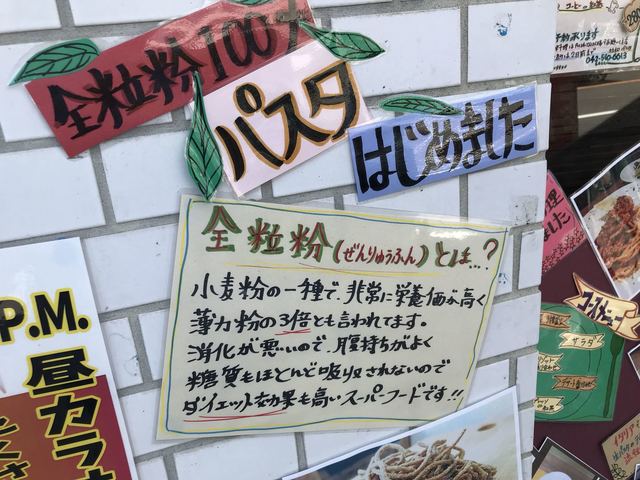 全粒粉100%
パスタ
はじめました
全粒粉(ぜんりゅうふん)とは…?
小麦粉の一種で、非常に栄養価が高く
薄力粉の3倍とも言われてます。
消化が悪いので、腹持ちがよく
糖質もほとんど吸収されないので
ダイエット効果も高いスーパーフードです!!
P.M.
昼カラオ
042-510-6613
コースメニュー
サラダ